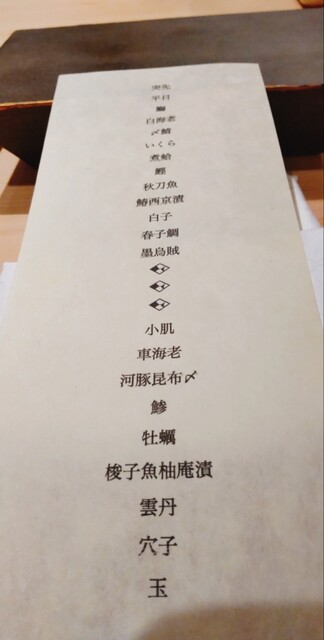 突先
平目
鰤
白海老
〆鯖
いくら
煮蛤
鰹
秋刀魚
鰆西京漬
白子
春子鯛
墨烏賊
小肌
車海老
河豚昆布〆
鯵
牡蠣
梭子魚柚庵漬
雲丹
穴子
玉